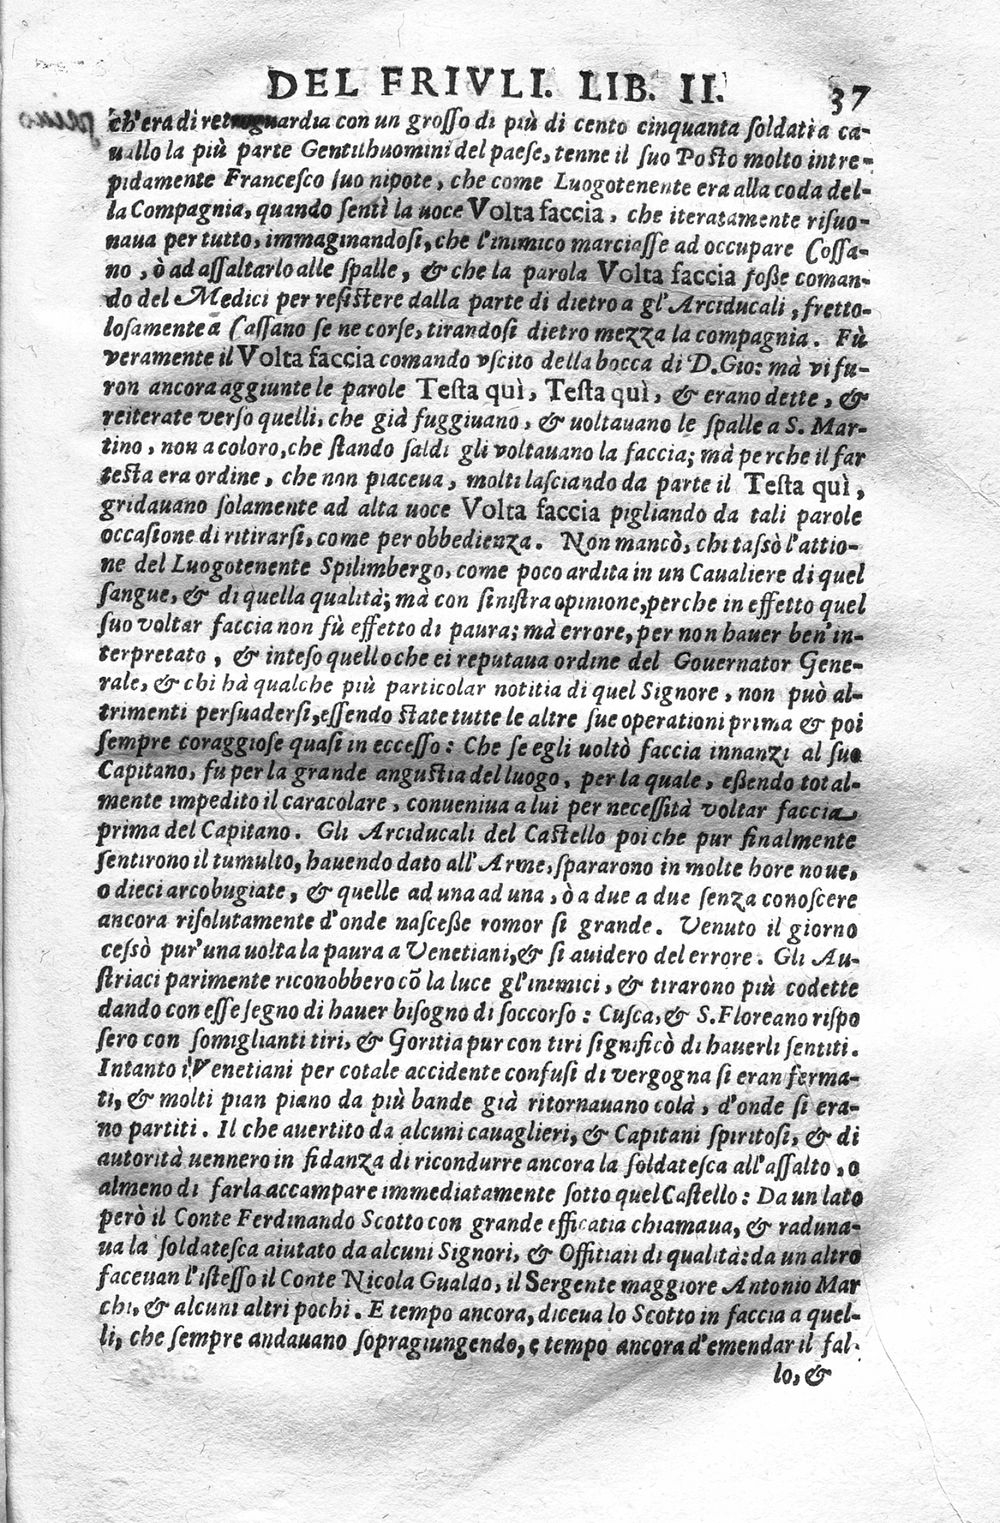 DEL FRIVLI. LIB. II. 37
ch'era di retroguardia con un grosso di più di cento cinquanta soldati a ca-
uallo la più parte Gentilhuomini del paese, tenne il suo Posto molto intre-
pidamente Francesco suo nipote, che come Luogotenente era alla coda del-
la Compagnia, quando sentì la uoce Volta faccia, che iteratamente risuo-
naua per tutto, immaginandosi, che l'inimico marciasse ad occupare Cossa-
no, ò ad assaltarlo alle spalle, & che la parola Volta faccia fosse coman-
do del Medici per resistere dalla parte di dietro a gl'Arciducali, fretto-
losamente a Cassano se ne corse, tirandosi dietro mezza la compagnia. Fù
veramente il Volta faccia comando vscito della bocca di D. Gio: mà vi fu-
ron ancora aggiunte le parole Testa quì, Testa quì, & erano dette, &
reiterate verso quelli, che già fuggiuano, & uoltauano le spalle a S. Mar-
tino, non a coloro, che stando saldi gli voltauano la faccia; mà perche il far
testa era ordine, che non piaceua, molti lasciando da parte il Testa quì,
gridauano solamente ad alta uoce Volta faccia pigliando da tali parole
occasione di ritirarsi, come per obbedienza. Non mancò, chi tassò l'attio-
ne del Luogotenente Spilimbergo, come poco ardita in un Caualiere di quel
sangue, & di quella qualità; mà con sinistra opinione, perche in effetto quel
suo voltar faccia non fù effetto di paura; mà errore, per non hauer ben'in-
terpretato, & inteso quello che ei reputaua ordine del Gouernator Gene-
rale, & chi hà qualche più particolar notitia di quel Signore, non può al-
trimenti persuadersi, essendo state tutte le altre sue operationi prima & poi
sempre coraggiose quasi in eccesso: Che se egli uoltò faccia innanzi al suo
Capitano, fu per la grande angustia del luogo, per la quale, essendo total-
mente impedito il caracolare, conueniua a lui per necessità voltar faccia
prima del Capitano. Gli Arciducali del Castello poi che pur finalmente
sentirono il tumulto, hauendo dato all'Arme, spararono in molte hore noue,
o dieci arcobugiate, & quelle ad una ad una, ò a due a due senza conoscere
ancora risolutamente d'onde nascesse romor sì grande. Venuto il giorno
cessò pur'una uolta la paura a Venetiani, & si auidero del errore. Gli Au-
striaci parimente riconobbero cõ la luce gl'inimici, & tirarono più codette
dando con esse segno di hauer bisogno di soccorso: Cusca, & S. Floreano rispo
sero con somiglianti tiri, & Goritia pur con tiri significò di hauerli sentiti.
Intanto i Venetiani per cotale accidente confusi di vergogna si eran ferma-
ti, & molti pian piano da più bande già ritornauano colà, d'onde si era-
no partiti. Il che auertito da alcuni cauaglieri, & Capitani spiritosi, & di
autorità uennero in fidanza di ricondurre ancora la soldatesca all'assalto, o
almeno di farla accampare immediatamente sotto quel Castello: Da un lato
però il Conte Ferdinando Scotto con grande efficatia chiamaua, & raduna-
ua la soldatesca aiutato da alcuni Signori, & Offitiali di qualità: da un altro
faceuan l'istesso il Conte Nicola Gualdo, il Sergente maggiore Antonio Mar
chi, & alcuni altri pochi. E tempo ancora, diceua lo Scotto in faccia a quel-
li, che sempre andauano sopragiungendo, e tempo ancora d'emendar il fal-
lo, &